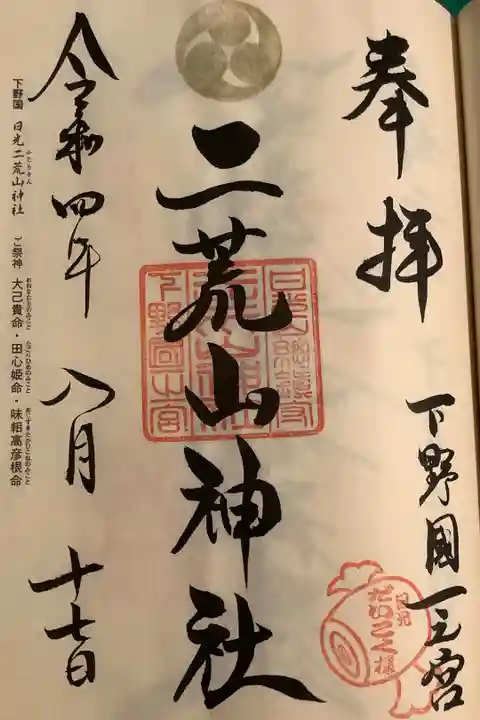 奉拝
下野國一之宮
日光
だいこく様
二荒山神社
下野國一宮
令和四年 八月 十七日
下野国 日光二荒山神社 ご祭神 大己貴命・田心姫命・味耜高彦根命